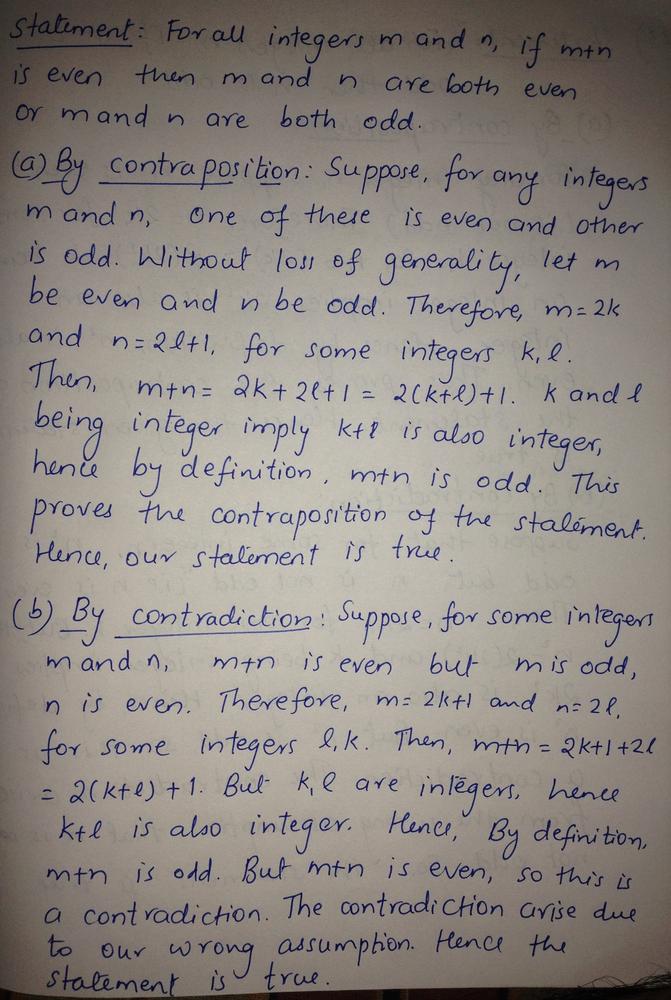 Statement: For all integers m and n, if m+n
is even then m and n are both even
or m and n are both odd.
(a) By contraposition: Suppose, for any integers
m and n, one of these is even and other
is odd. Without loss of generality, let m
be even and n be odd. Therefore, m=2k
and n=2l+1, for some integers k, l.
Then, m+n= 2k+2l+1 = 2(k+l)+1. k and l
being integer imply k+l is also integer,
hence by definition, m+n is odd. This
proves the contraposition of the statement.
Hence, our statement is true.
(b) By contradiction: Suppose, for some integers
m and n, m+n is even but m is odd,
n is even. Therefore, m= 2k+1 and n=2l,
for some integers l,k. Then, m+n = 2k+1+2l
= 2(k+l)+1. But k,l are integers, hence
k+l is also integer. Hence, By definition,
m+n is odd. But m+n is even, so this is
a contradiction. The contradiction arise due
to our wrong assumption. Hence the
statement is true.